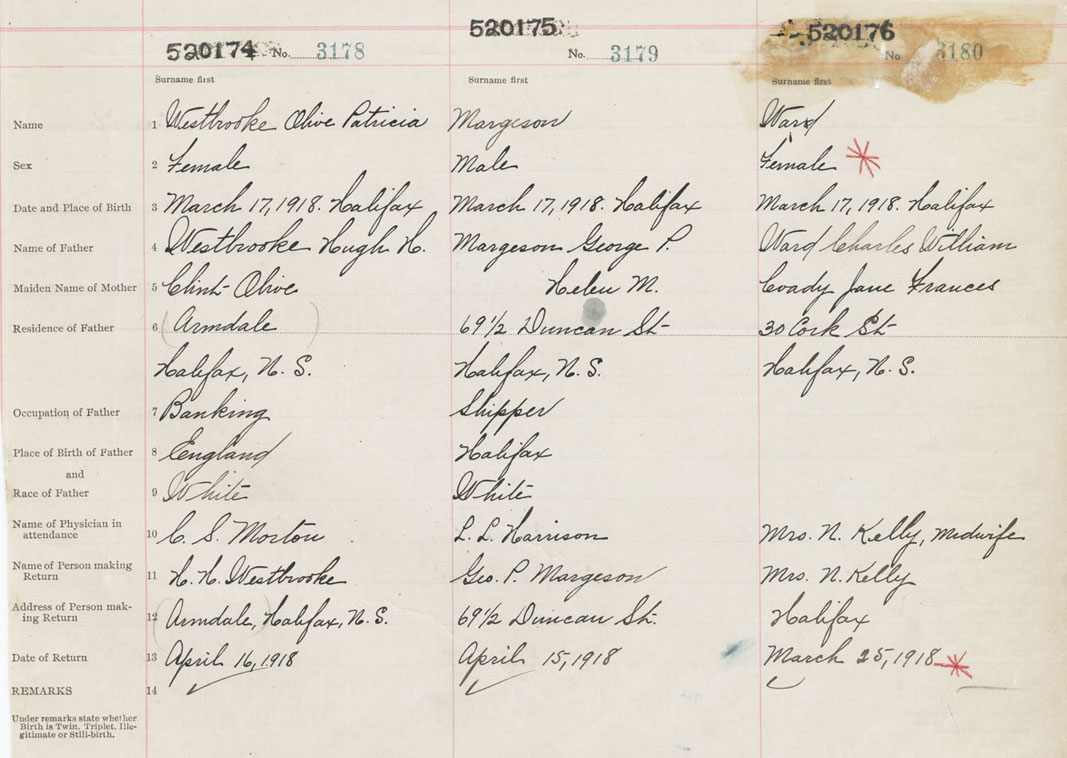 520174 No. 3178
520175 No. 3179
520176 No. 3180
Surname first Surname first Surname first
Name 1 Westbrooke Olive Patricia Margeson Ward
Sex 2 Female Male Female
Date and Place of Birth 3 March 17, 1918. Halifax March 17, 1918. Halifax March 17, 1918. Halifax
Name of Father 4 Westbrooke Hugh H. Margeson George P. Ward Charles William
Maiden Name of Mother 5 Clint Olive Helen M. Coady Jane Frances
Residence of Father 6 (Armdale) 69 1/2 Duncan St 30 Cork St
Halifax, N. S. Halifax, N. S. Halifax, N. S.
Occupation of Father 7 Banking Shipper
Place of Birth of Father 8 England Halifax
and
Race of Father 9 White White
Name of Physician in
attendance 10 C. S. Morton L. L. Harrison Mrs. N. Kelly, Midwife
Name of Person making
Return 11 H. H. Westbrooke Geo. P. Margeson Mrs. N. Kelly
Address of Person mak-
ing Return 12 (Armdale, Halifax, N. S. 69 1/2 Duncan St. Halifax
Date of Return 13 April 16, 1918 April 15, 1918 March 25, 1918
REMARKS 14
Under remarks state whether
Birth is Twin, Triplet, Ille-
gitimate or Still-birth.